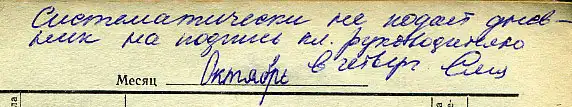 Систематически не подаёт днев-
ник на подпись кл. руководителю
в четверг
Месяц Октябрь